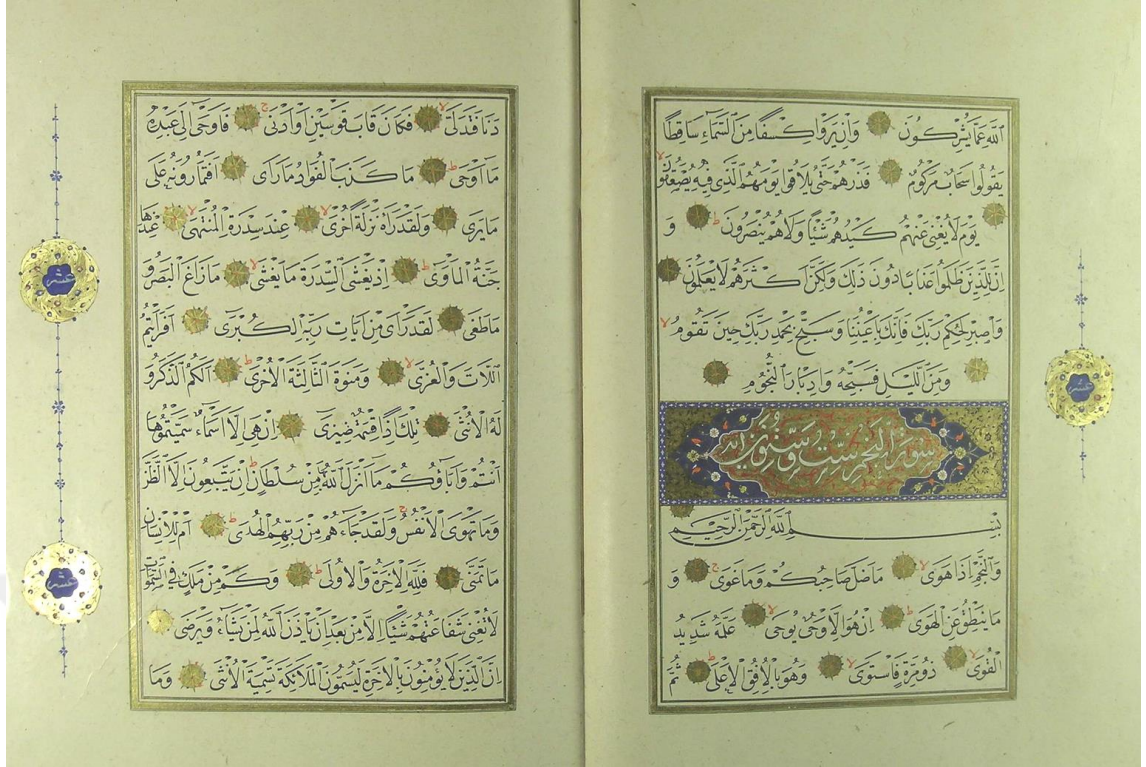 الله عما يشركون وان يروا كسفا من السماء ساقطا
يقولوا سحاب مركوم فذرهم حتى يلاقوا يومهم الذى فيه يصعقون
يوم لا يغنى عنهم كيدهم شيئا ولا هم ينصرون و
ان للذين ظلموا عذابا دون ذلك ولكن اكثرهم لا يعلمون
واصبر لحكم ربك فانك باعيننا وسبح بحمد ربك حين تقوم
ومن الليل فسبحه وادبار النجوم
سورة النجم ستون وستون اية
بسم الله الرحمن الرحيم
والنجم اذا هوى ما ضل صاحبكم وما غوى و
ما ينطق عن الهوى ان هو الا وحى يوحى علمه شديد
القوى ذو مرة فاستوى وهو بالافق الاعلى ثم
عشر
دنا فتدلى فكان قاب قوسين او ادنى فاوحى الى عبده
ما اوحى ما كذب الفواد ما راى افتمارونه على
ما يرى ولقد راه نزلة اخرى عند سدرة المنتهى عندها
جنة الماوى اذ يغشى السدرة ما يغشى ما زاغ البصر و
ما طغى لقد راى من ايات ربه الكبرى افرايتم
اللات والعزى ومنوة الثالثة الاخرى الكم الذكر و
له الانثى تلك اذا قسمة ضيزى ان هى الا اسماء سميتموها
انتم واباؤكم ما انزل الله بها من سلطان ان يتبعون الا الظن
وما تهوى الانفس ولقد جاءهم من ربهم الهدى ام للانسان
ما تمنى فلله الاخرة والاولى وكم من ملك في السموات
لا تغنى شفاعتهم شيئا الا من بعد ان ياذن الله لمن يشاء ويرضى
ان الذين لا يؤمنون بالاخرة ليسمون الملائكة تسمية الانثى وما
عشر
عشر